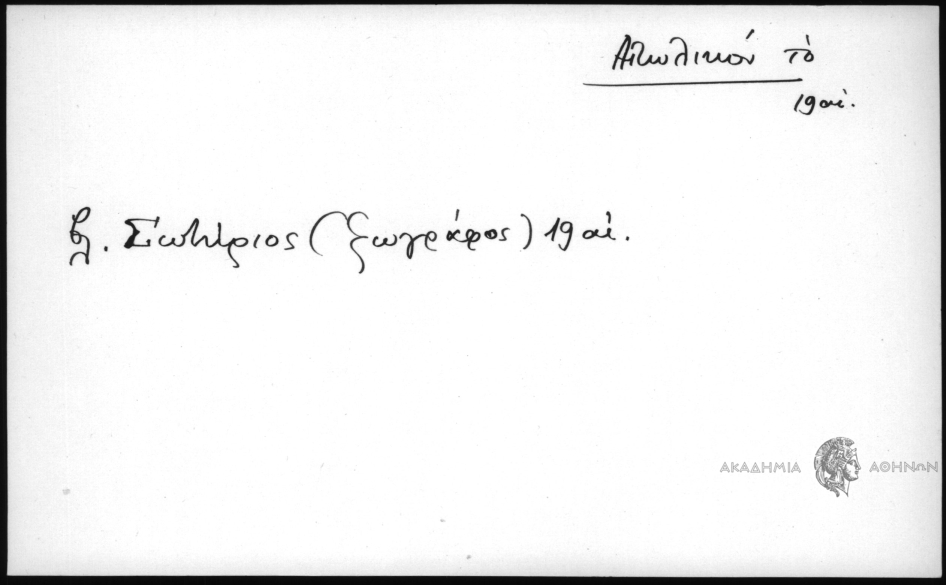 Αἰτωλικόν τό
19 αἰ.
βλ. Σωτήριος (ζωγράφος) 19 αἰ.
ΑΚΑΔΗΜΙΑ ΑΘΗΝΩΝ